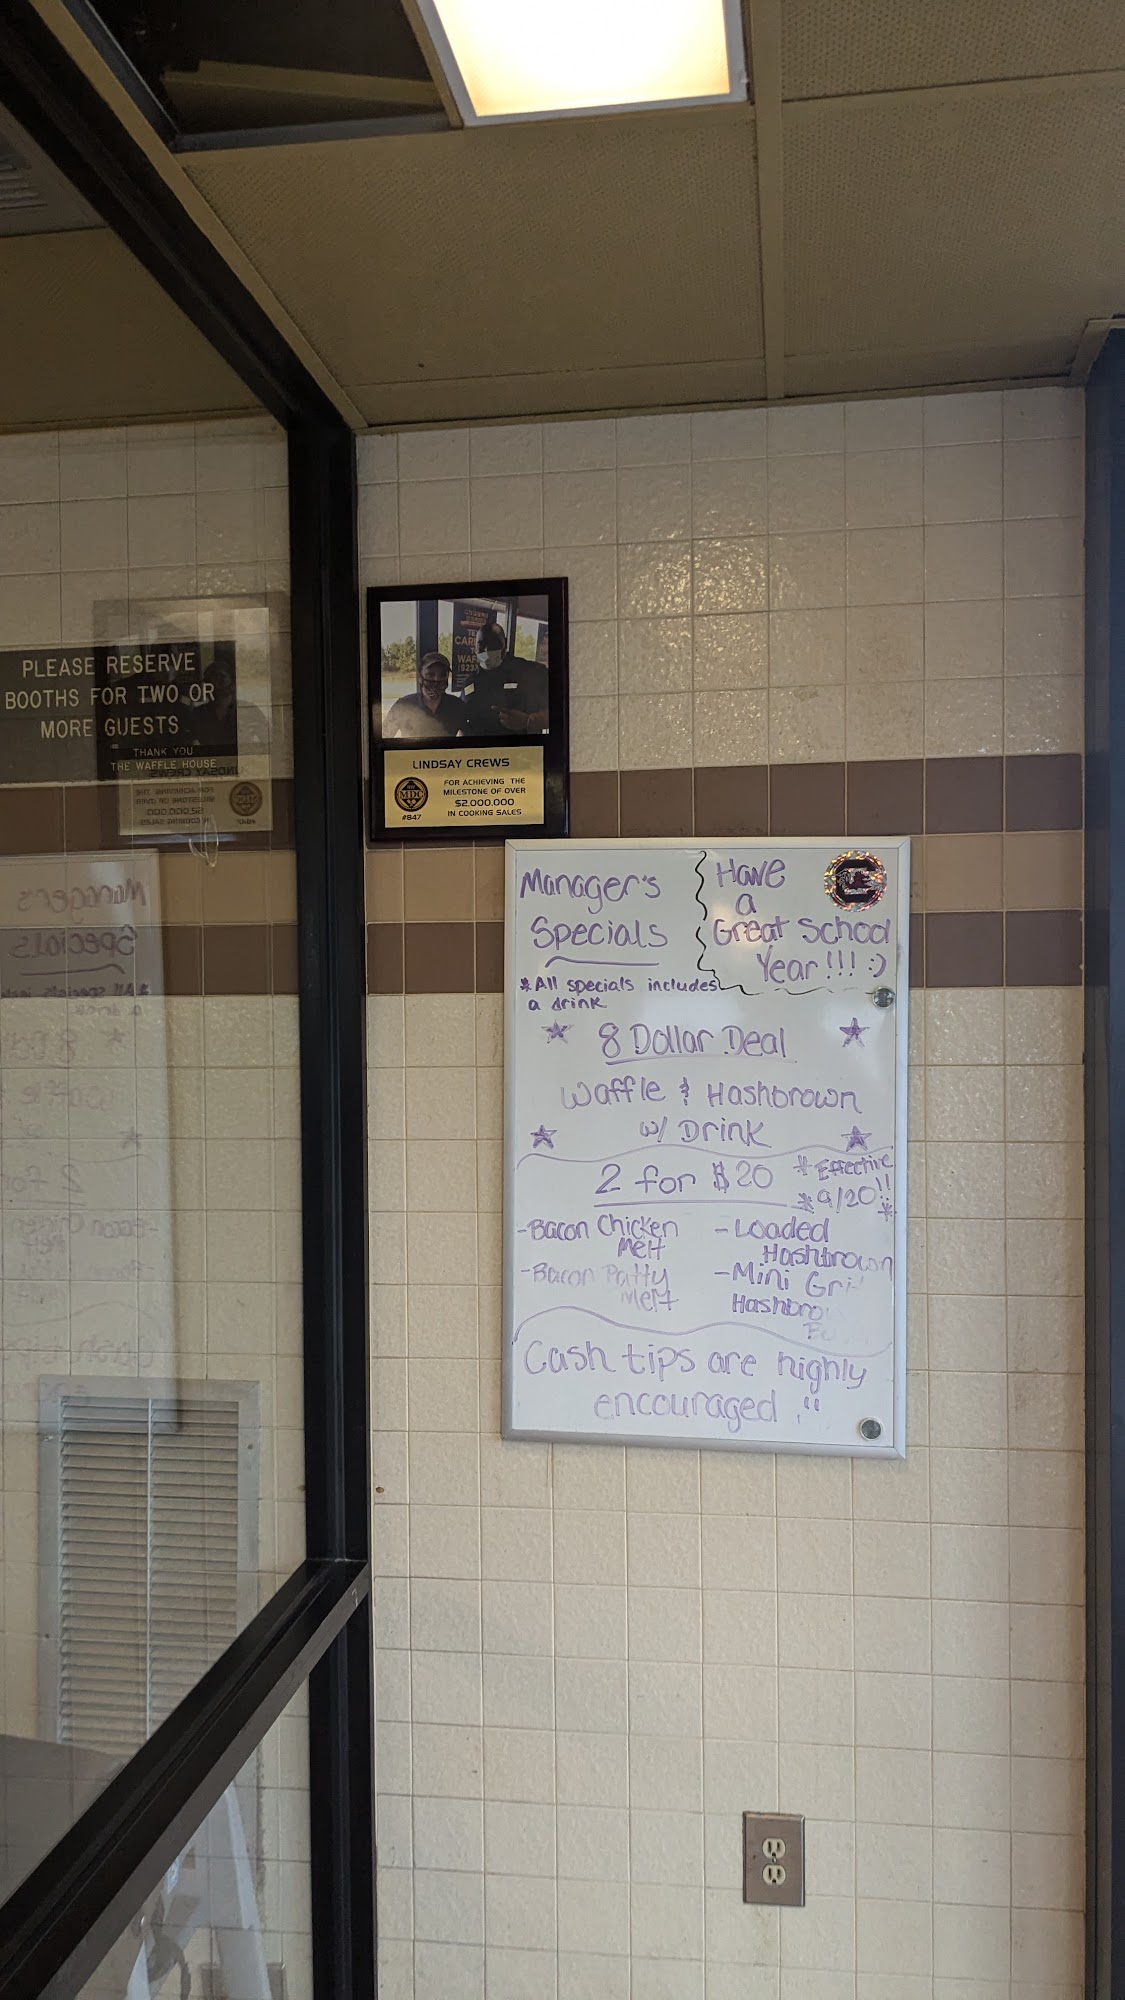 PLEASE RESERVE
BOOTHS FOR TWO OR
MORE GUESTS
THANK YOU
THE WAFFLE HOUSE
LINDSAY CREWS
MDC
#847
FOR ACHIEVING THE
MILESTONE OF OVER
$2,000,000
IN COOKING SALES
Manager's
Specials
*All specials includes
a drink
Have
a
Great School
Year!!! :)
C
8 Dollar Deal
Waffle & Hashbrown
w/ Drink
2 for $20
*Effective
*9/20!!*
-Bacon Chicken
Melt
-Bacon Patty
Melt
-Loaded
Hashbrown
-Mini
Cash tips are highly
encouraged